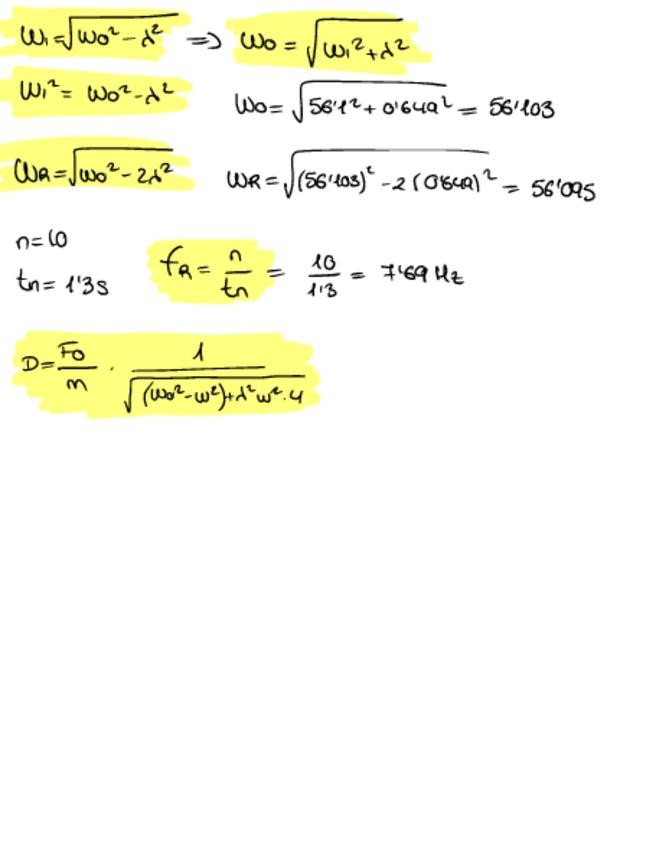 W₁=√(W0²-λ²) => W0 = √(W₁²+λ²)
W₁² = W0²-λ² W0= √(56'1² + 0'649²) = 56'103
WR=√(W0²-2λ²) WR=√((56'103)² -2(0'649)²) = 56'095
n=10
tn= 1'3s fR= n/tn = 10/1'3 = 7'69 Hz
D= F0/m · 1/√((W0²-W²)+λ²W²·4)